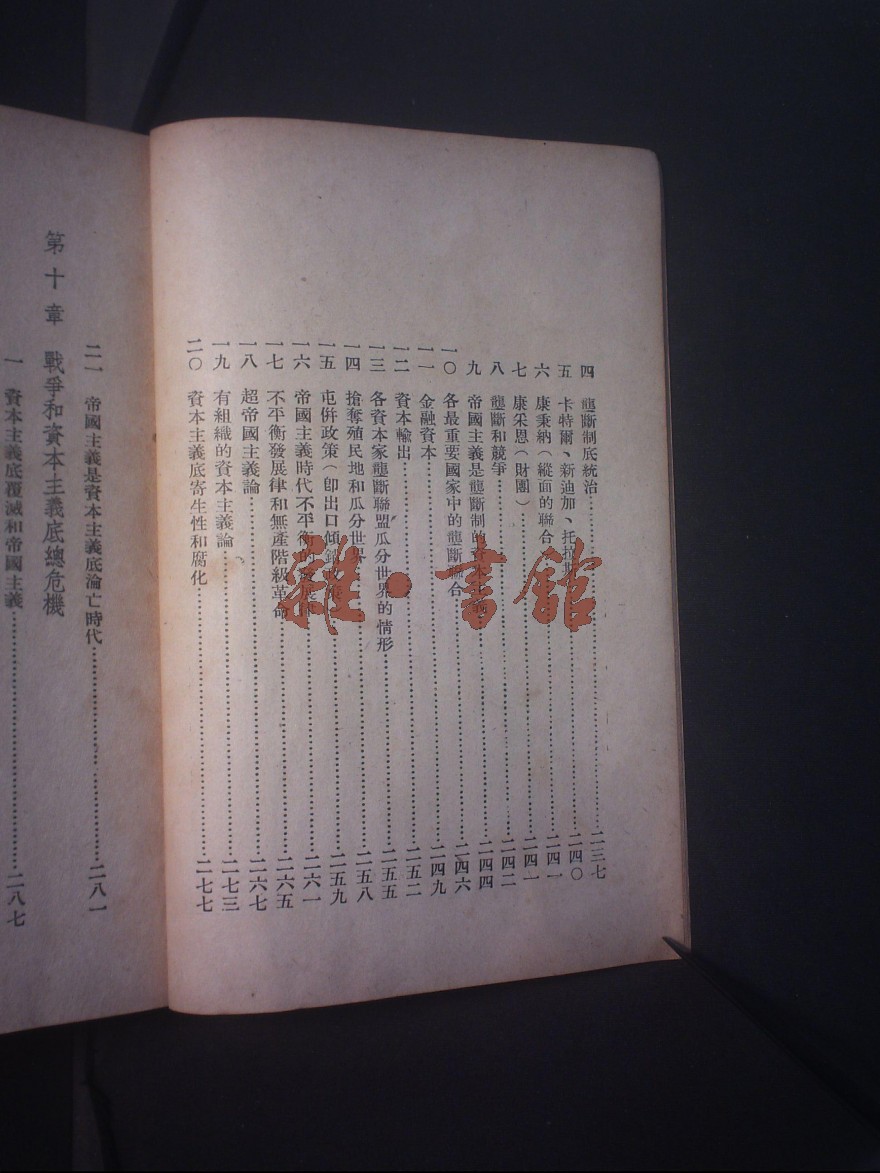 四 壟斷制底統治……二三七
五 卡特爾、新迪加、托拉斯……二四〇
六 康秉納(縱面的聯合)……二四一
七 康采恩(財團)……二四一
八 壟斷和競爭……二四二
九 帝國主義是壟斷制的資本主義……二四四
一〇 各最重要國家中的壟斷聯合……二四六
一一 金融資本……二四九
一二 資本輸出……二五二
一三 各資本家壟斷聯盟瓜分世界的情形……二五五
一四 搶奪殖民地和瓜分世界……二五八
一五 屯併政策(即出口傾銷……二五九
一六 帝國主義時代不平衡的發展……二六一
一七 不平衡發展律和無產階級革命……二六五
一八 超帝國主義論……二六七
一九 有組織的資本主義論……二七三
二〇 資本主義底寄生性和腐化……二七七
二一 帝國主義是資本主義底淪亡時代……二八一
第十章 戰爭和資本主義底總危機
一 資本主義底覆滅和帝國主義……二八七
雅·書館